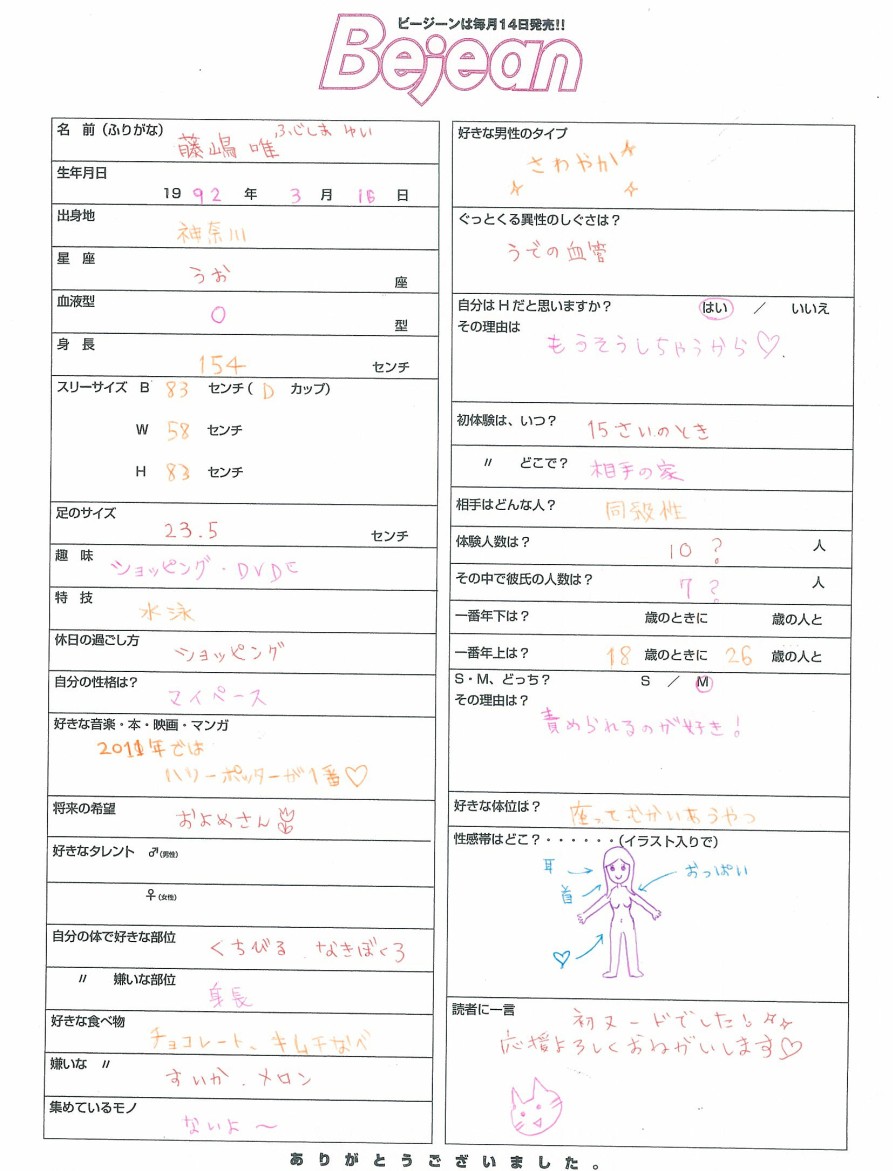 ビージーンは毎月14日発売!!
Bejean
名 前(ふりがな) 藤嶋 唯 ふじしま ゆい
生年月日 1992年 3月 16日
出身地 神奈川
星 座 うお 座
血液型 O 型
身 長 154 センチ
スリーサイズ B 83 センチ( D カップ)
W 58 センチ
H 83 センチ
足のサイズ 23.5 センチ
趣 味 ショッピング・DVD
特 技 水泳
休日の過ごし方 ショッピング
自分の性格は? マイペース
好きな音楽・本・映画・マンガ
2011年では
ハリーポッターが1番♡
将来の希望 およめさん
好きなタレント ♂(男性)
♀(女性)
自分の体で好きな部位 くちびる なきぼくろ
〃 嫌いな部位 身長
好きな食べ物 チョコレート、キムチなべ
嫌いな 〃 すいか、メロン
集めているモノ ないよ〜
好きな男性のタイプ
さわやか
ぐっとくる異性のしぐさは?
うでの血管
自分はHだと思いますか? はい / いいえ
その理由は
もうそうしちゃうから♡
体験人数は? 10? 人
その中で彼氏の人数は? 7? 人
一番年下は? 歳のときに 歳の人と
一番年上は? 18 歳のときに 26 歳の人と
S・M、どっち? S / M
その理由は?
責められるのが好き!
好きな体位は? 座ってむかいあうやつ
性感帯はどこ?・・・・・・(イラスト入りで)
耳
おっぱい
首
♡
読者に一言
初ヌードでした!
応援よろしくおねがいします♡
ありがとうございました。